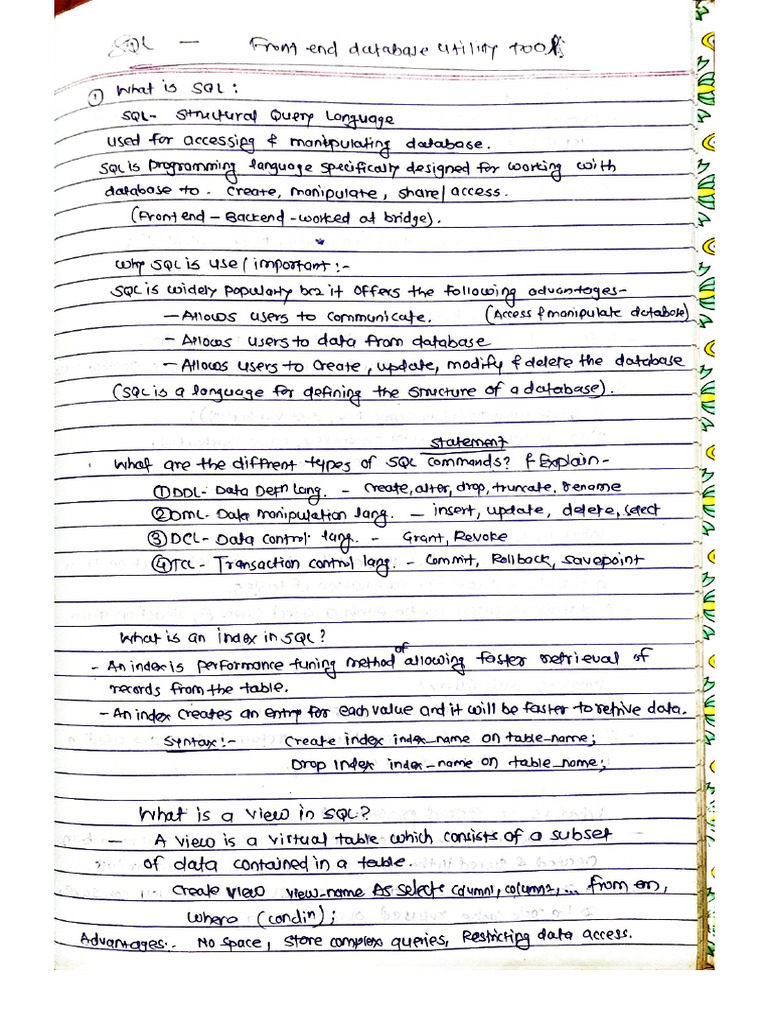 SQL — Front end database utility tools
① What is SQL:
SQL- Structural Query Language
used for accessing & manipulating database.
SQL is programming language specifically designed for working with
database to. create, manipulate, share/access.
(Front end - Backend - worked at bridge).
Why SQL is use/important:-
SQL is widely popularly bcz it offers the following advantages-
- Allows users to communicate. (Access & manipulate database)
- Allows users to data from database
- Allows users to create, update, modify & delete the database
(SQL is a language for defining the structure of a database).
statement
What are the diffrent types of SQL commands? & Explain-
① DDL- Data Defn lang. - create, alter, drop, truncate, rename
② DML- Data manipulation lang. - insert, update, delete, select
③ DCL- Data control lang. - Grant, Revoke
④ TCL- Transaction control lang. - Commit, Rollback, savepoint
What is an index in SQL?
- An index is performance tuning method of allowing faster retrieval of
records from the table.
- An index creates an entry for each value and it will be faster to retrive data.
Syntax:- Create index index_name on table_name;
Drop index index_name on table_name;
What is a view in SQL?
- A view is a virtual table which consists of a subset
of data contained in a table.
Create view view-name As select column1, column2, ... from
where (condin);
Advantages:- No space, store complex queries, Restricting data access.